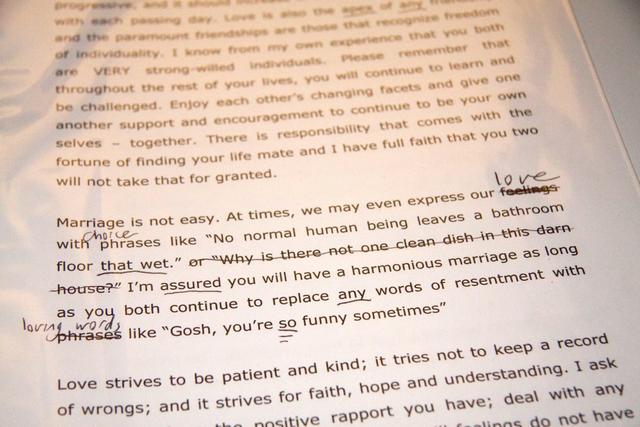 progressive, and it should increase
with each passing day. Love is also the apex of any
and the paramount friendships are those that recognize freedom
of individuality. I know from my own experience that you both
are VERY strong-willed individuals. Please remember that
throughout the rest of your lives, you will continue to learn and
be challenged. Enjoy each other's changing facets and give one
another support and encouragement to continue to be your own
selves – together. There is responsibility that comes with the
fortune of finding your life mate and I have full faith that you two
will not take that for granted.
love
Marriage is not easy. At times, we may even express our feelings
choice
with phrases like "No normal human being leaves a bathroom
floor that wet." or "Why is there not one clean dish in this darn
house?" I'm assured you will have a harmonious marriage as long
as you both continue to replace any words of resentment with
loving words
phrases like "Gosh, you're so funny sometimes"
Love strives to be patient and kind; it tries not to keep a record
of wrongs; and it strives for faith, hope and understanding. I ask
the positive rapport you have; deal with any
feelings do not have